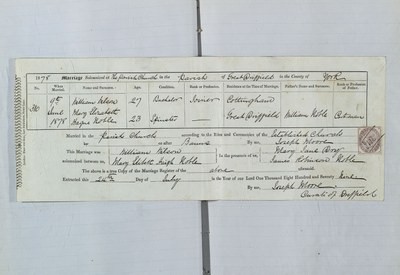 1878 Marriage Solemnized at The Parish Church in the Parish of Great Driffield in the County of York
No. When Married. Name and Surname. Age. Condition. Rank or Profession. Residence at the Time of Marriage. Father's Name and Surname. Rank or Profession of Father.
4th June 1878 William Wilson 27 Bachelor Cottingham
Mary Elizabeth Noble 23 Spinster — Great Driffield William Noble
Married in the Parish Church according to the Rites and Ceremonies of the Established Church
by or after Banns By me, Joseph Moore
This Marriage was solemnized between us, William Wilson in the presence of us, Mary Jane
Noble James Robinson Noble
The above is a true Copy of the Marriage Register of the above aforesaid.
Extracted this Day of July in the Year of our Lord One Thousand Eight Hundred and Seventy
By me, Joseph Moore
Curate of Driffield